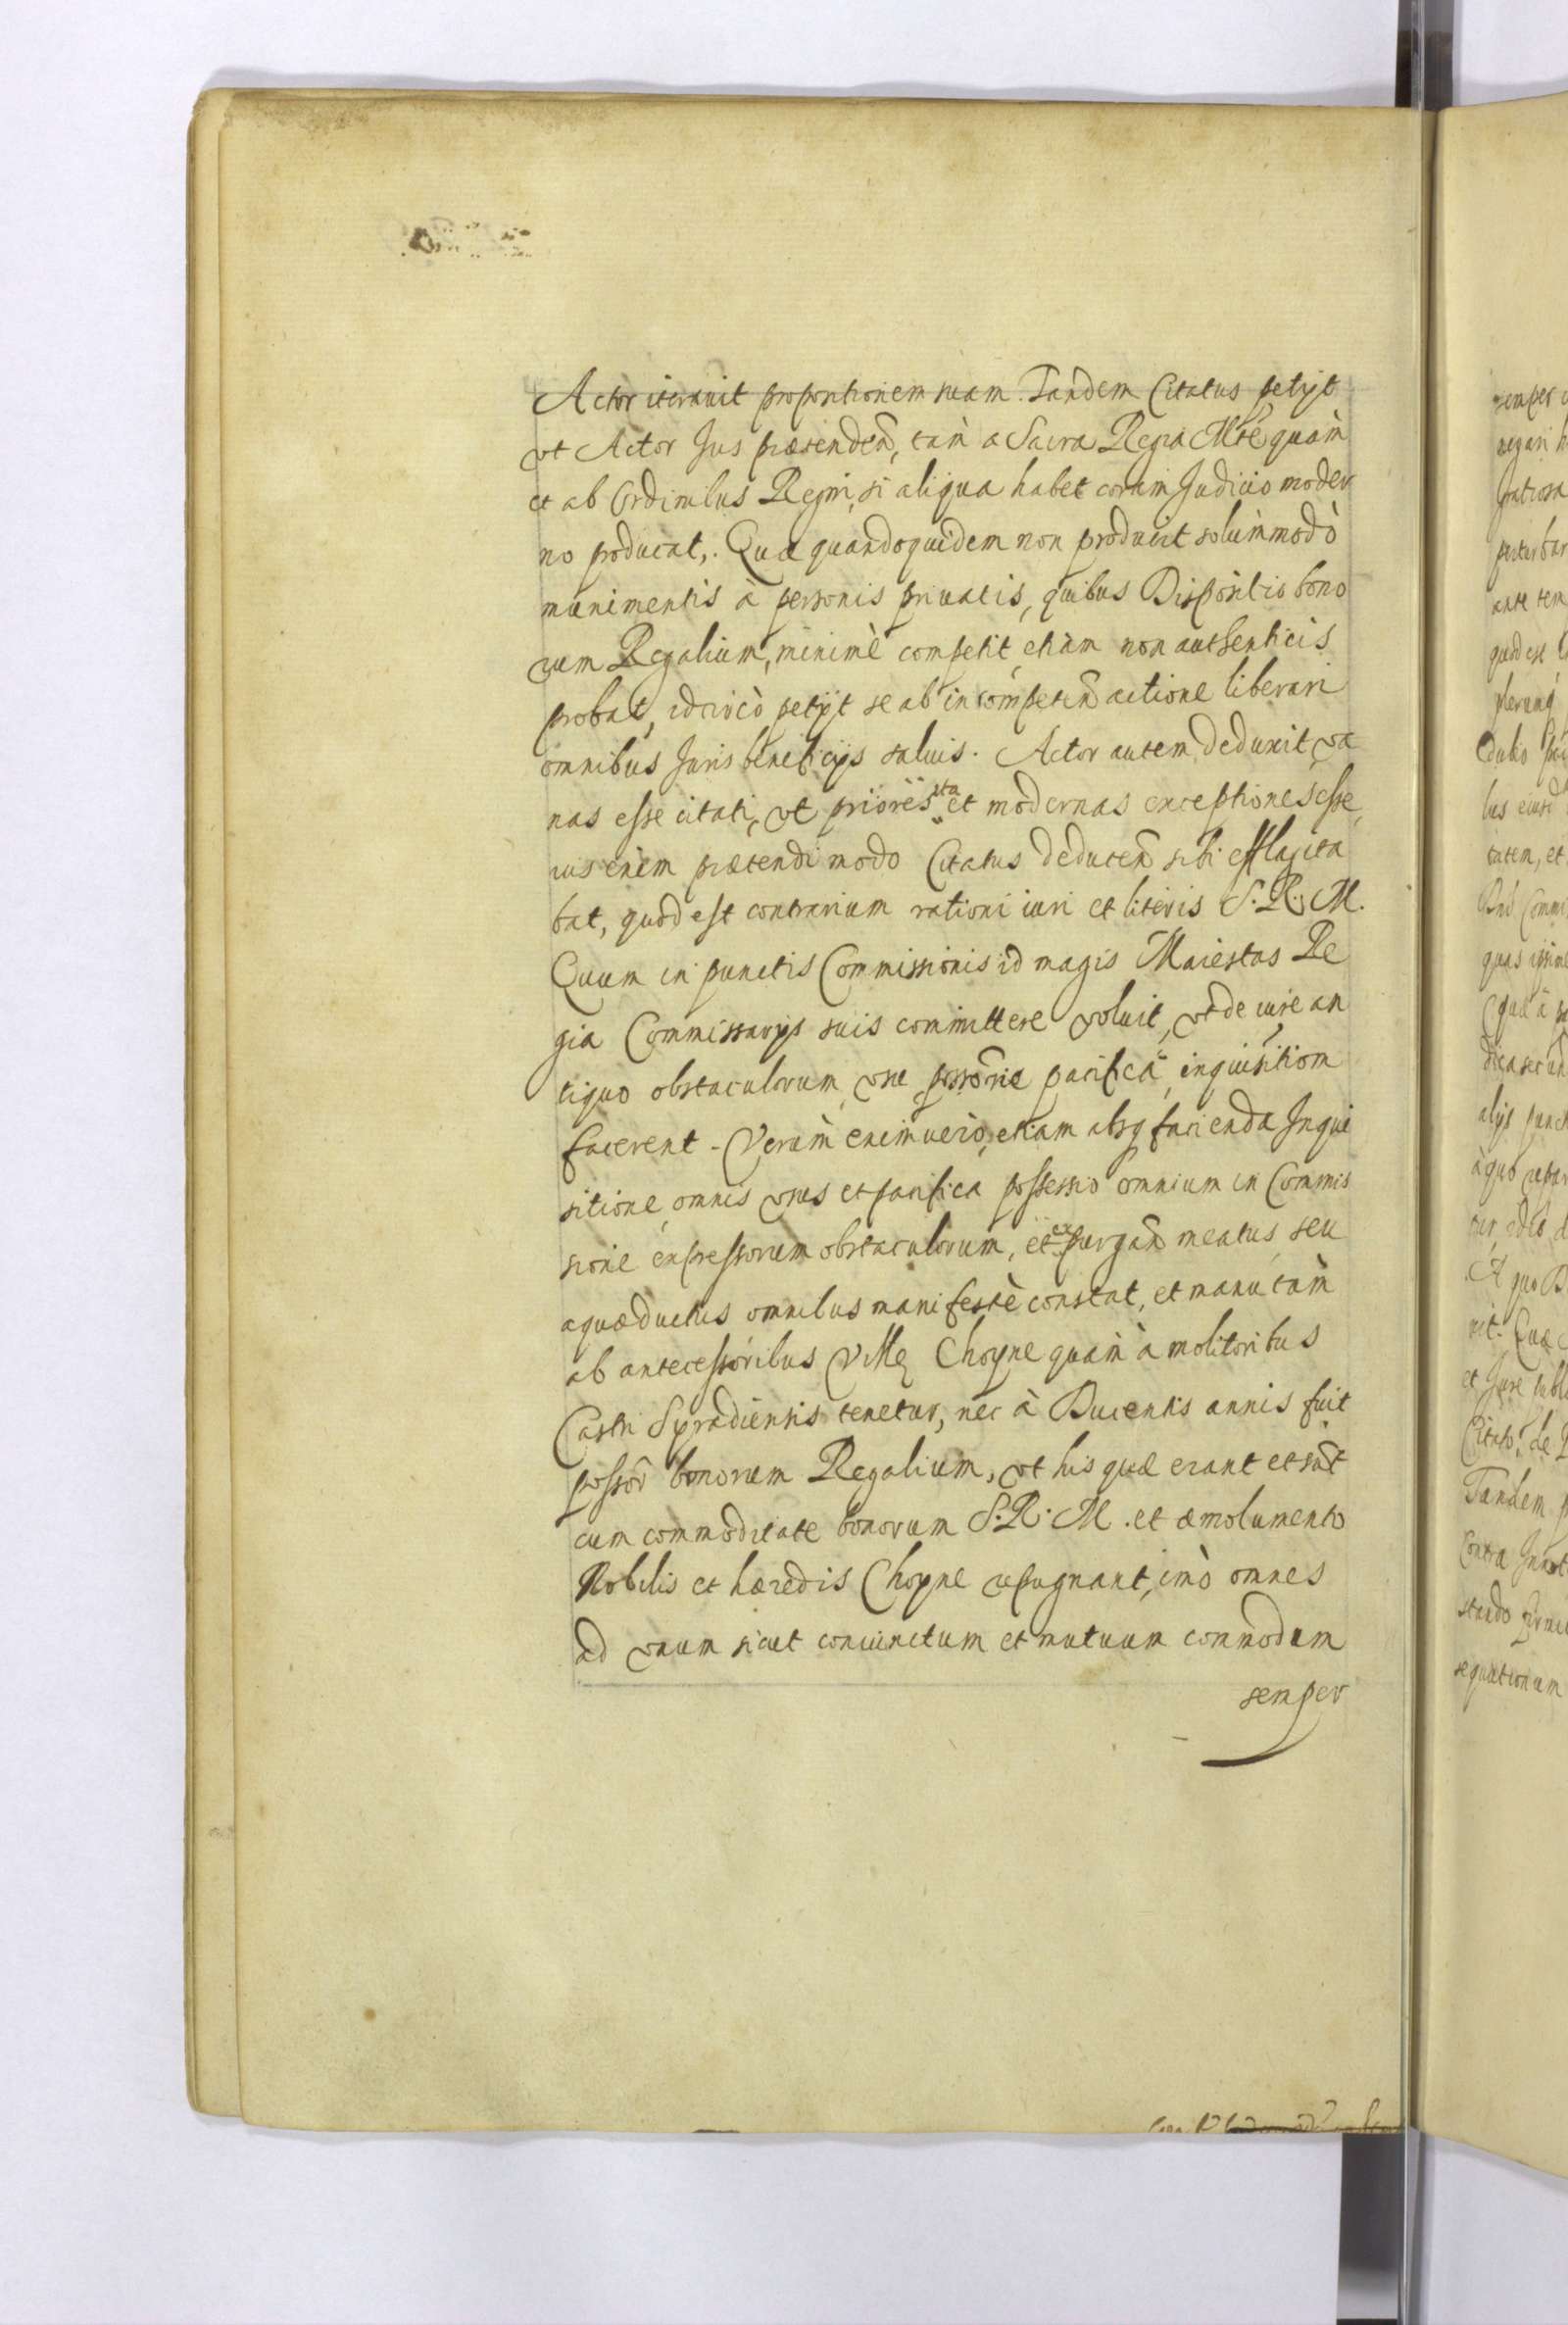 Actor iterauit propositionem suam. Tandem Citatus petijt
vt Actor Jus prætenden̄, tam̀ a Sacra Regia Mtẽ quam̀
et ab Ordinibus Regni, si aliqua habet coram Judicio moder
no producat,. Quæ quandoquidem non producit solum̀modò
munimentis à personis priuatis, quibus Dispositio bono
rum Regalium, minimè competit, etiam non authenticis
probat, idcircò petijt se ab incompeten̄ actione liberari
omnibus Juris beneficijs saluis. Actor autem deduxit, va
nas esse citati, vt priores ita et modernas exceptiones esse,
ius enim prætendi modo Citatus deducen̄ sibi efflagita
bat, quod est contrarium rationi iuri et literis S. R. M.
Quum in punctis Commissionis id magis Maiestas Re
gia Commissarijs suis committere voluit, vt de iure an
tiquo obstaculorum, vsu, pacifica, inquisitiom
facerent. Verum̀ enimuerò, etiam absq facienda Inqui
sitione, omnis vsus et pacifica possessio omnium in Commis
sione expressorum obstaculorum, et expurgan̄ meatus, seu
aquæductus omnibus manifestè constat, et manu tam̀
ab antecessoribus Villę Choyne quam̀ à molitoribus
Castri Syradiensis tenetur, nec à Ducentis annis fuit
possor̄ bonorum Regalium, vt his quæ erant et sūt
cum commoditate bonorum S. R. M. et æmolumento
Nobilis et hæredis Choyne repugnant, imò omnes
ad vnum sicut coniunctum et mutuum commodum
semper
semper
negari
ante tem
quod est
tatem, et
quas
à quo
A quo
Citato, de
Tandem
Contra
sequutionum